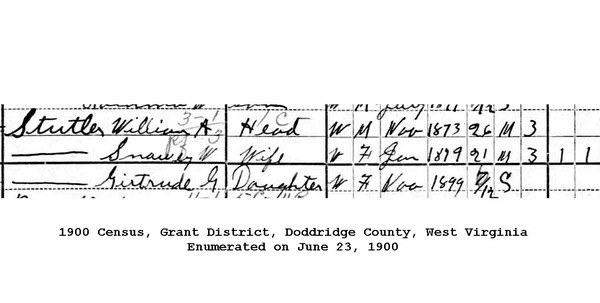 July
Stutler William A Head W M Nov 1873 26 M 3
—— V Wife W F Jan 1879 21 M 3 1 1
—— Girtrude G Daughter W F Nov 1899 7/12 S
1900 Census, Grant District, Doddridge County, West Virginia
Enumerated on June 23, 1900